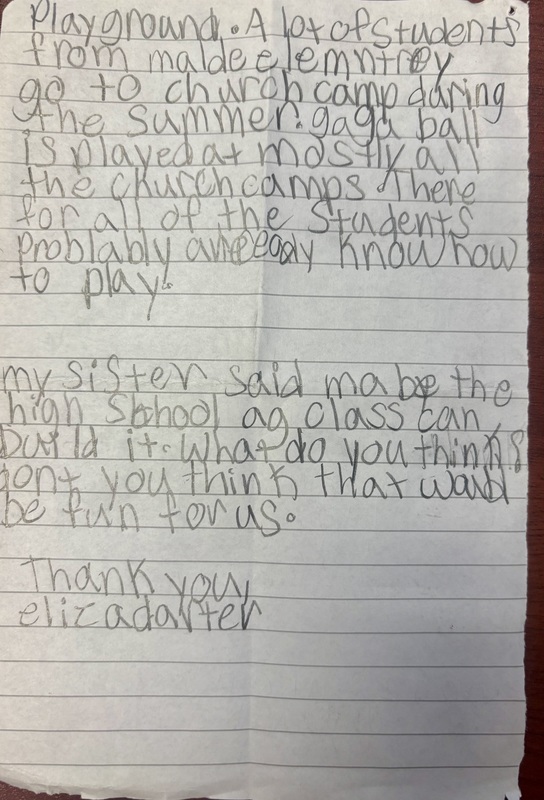 Playground. A lot of students
from malde elemntrey
go to church camp daring
the summer. gaga ball
is played at mostly all
the church camps There
for all of the students
problably already know how
to play!
my sister said mabe the
high School ag class can
build it. What do you think?
dont you think that would
be fun for us.
Thank you,
eliza darter